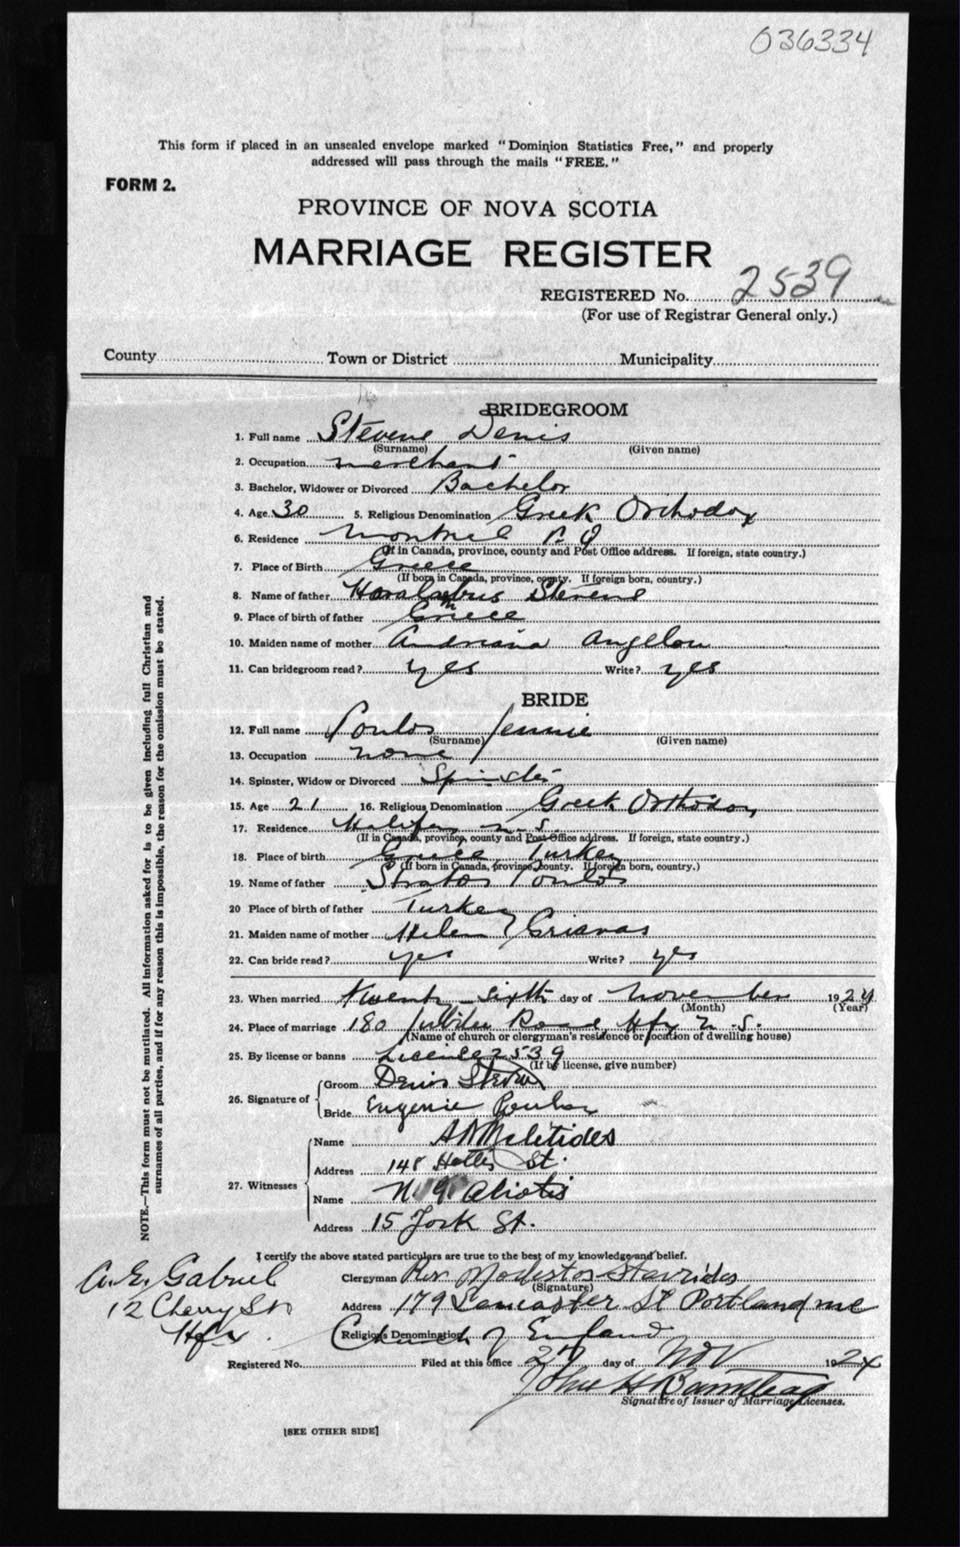 036334
This form if placed in an unsealed envelope marked "Dominion Statistics Free," and properly
addressed will pass through the mails "FREE."
FORM 2.
PROVINCE OF NOVA SCOTIA
MARRIAGE REGISTER
REGISTERED No. 2539
(For use of Registrar General only.)
County Town or District Municipality
BRIDEGROOM
1. Full name Stevens Denis
(Surname) (Given name)
2. Occupation merchant
3. Bachelor, Widower or Divorced Bachelor
4. Age 30 5. Religious Denomination Greek Orthodox
6. Residence Montreal P. Q
(If in Canada, province, county and Post Office address. If foreign, state country.)
7. Place of Birth Greece
(If born in Canada, province, county. If foreign born, country.)
8. Name of father Haralambus Stevens
9. Place of birth of father Greece
10. Maiden name of mother Andriana Angelou
11. Can bridegroom read? yes Write? yes
BRIDE
12. Full name Poulos Jennie
(Surname) (Given name)
13. Occupation none
14. Spinster, Widow or Divorced Spinster
15. Age 21 16. Religious Denomination Greek Orthodox
17. Residence Halifax N. S.
(If in Canada, province, county and Post Office address. If foreign, state country.)
18. Place of birth Greece Turkey
(If born in Canada, province, county. If foreign born, country.)
19. Name of father Stratos Poulos
20 Place of birth of father Turkey
21. Maiden name of mother Helen Grianas
22. Can bride read? yes Write? yes
23. When married Twenty-sixth day of November 1924
(Month) (Year)
24. Place of marriage 180 Jubilee Road, Hfx N. S.
(Name of church or clergyman's residence or location of dwelling house)
25. By license or banns Licence 2539
(If by license, give number)
26. Signature of Groom Denis
Bride Eugenie Poulos
27. Witnesses Name A N Meletides
Address 148 Hollis St.
Name N Aliotis
Address 15 York St.
NOTE.—This form must not be mutilated. All information asked for is to be given including full Christian and
surnames of all parties, and if for any reason this is impossible, the reason for the omission must be stated.
I certify the above stated particulars are true to the best of my knowledge and belief.
A. E. Gabriel
12 Cherry St
Hfx.
Clergyman Rev Modestos Stavrides
(Signature)
Address 179 Lancaster St Portland me
Religious Denomination Church of England
Registered No. Filed at this office 27 day of Nov 1924
John H Barnstead
Signature of Issuer of Marriage Licenses.
[SEE OTHER SIDE]